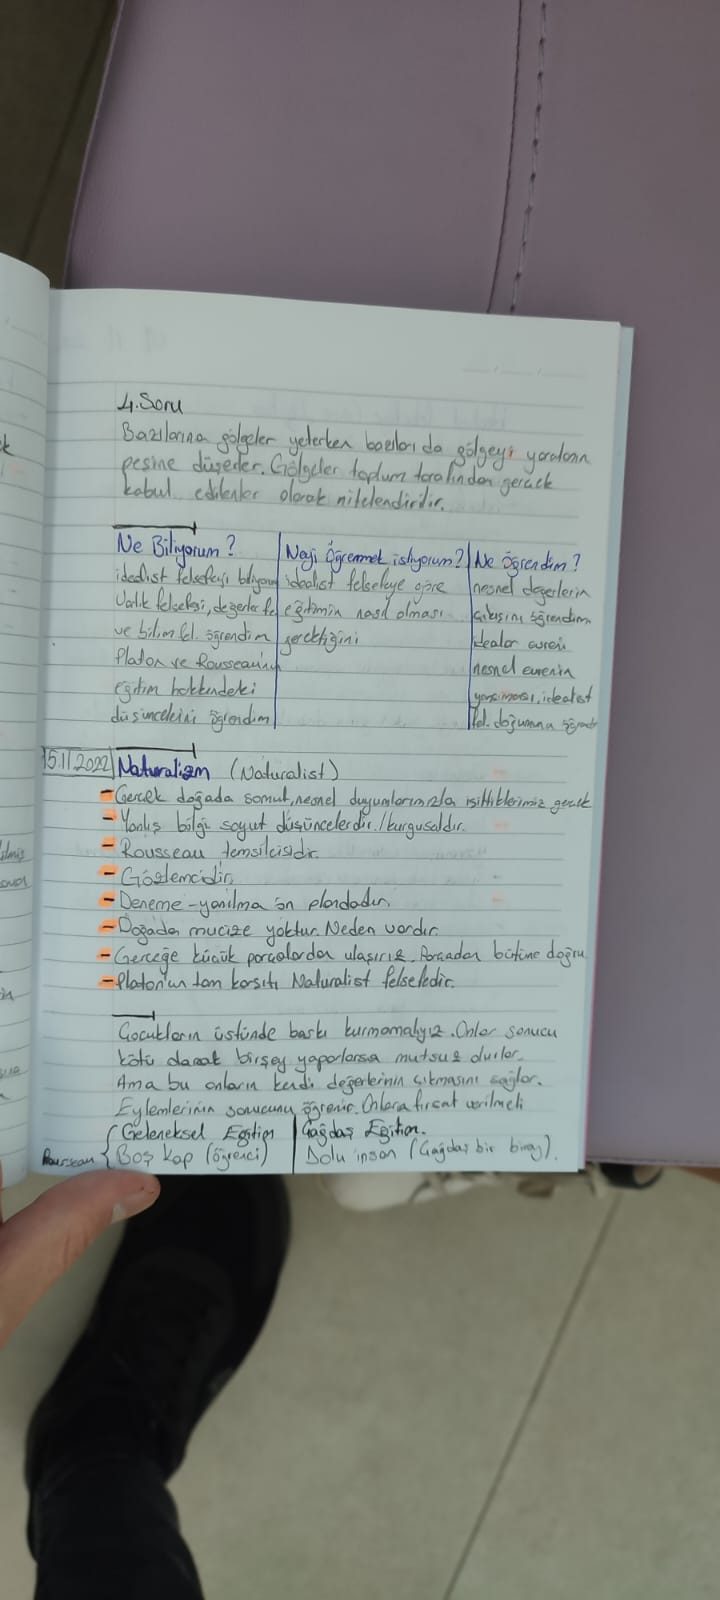 4.Soru
Bazılarına gölgeler yeterken bazıları da gölgeyi yaratanın
peşine düşerler. Gölgeler toplum tarafından gerçek
kabul edilenler olarak nitelendirilir.
Ne Biliyorum?
idealist felsefeyi biliyorum
Varlık felsefesi, değerler fel
ve bilim fel. öğrendim
Platon ve Rousseau'nun
eğitim hakkındaki
düşüncelerini öğrendim
Neyi Öğrenmek istiyorum?
idealist felsefeye göre
eğitimin nasıl olması
gerektiğini
Ne öğrendim?
nesnel değerlerin
çıkışını öğrendim
idealar evreni
nesnel evrenin
yansıması, idealist
fel. doğumunu öğrendim
15.11.2022 Naturalizm (Naturalist)
- Gerçek doğada somut, nesnel duyumlarımızla işittiklerimiz gerçek
- Yanlış bilgi soyut düşüncelerdir. / kurgusaldır.
- Rousseau temsilcisidir.
- Gözlemcidir.
- Deneme-yanılma ön plandadır.
- Doğada mucize yoktur. Neden vardır.
- Gerçeğe küçük parçalardan ulaşırız. Parçadan bütüne doğru
- Platon'un tam karşıtı Naturalist felsefedir.
Çocukların üstünde baskı kurmamalıyız. Onlar sonucu
kötü olacak birşey yaparlarsa mutsuz olurlar.
Ama bu onların kendi değerlerinin çıkmasını sağlar.
Eylemlerinin sonucunu öğrenir. Onlara fırsat verilmeli
Rousseau { Geleneksel Eğitim | Çağdaş Eğitim.
Boş kap (öğrenci) | Dolu insan (Çağdaş bir birey).